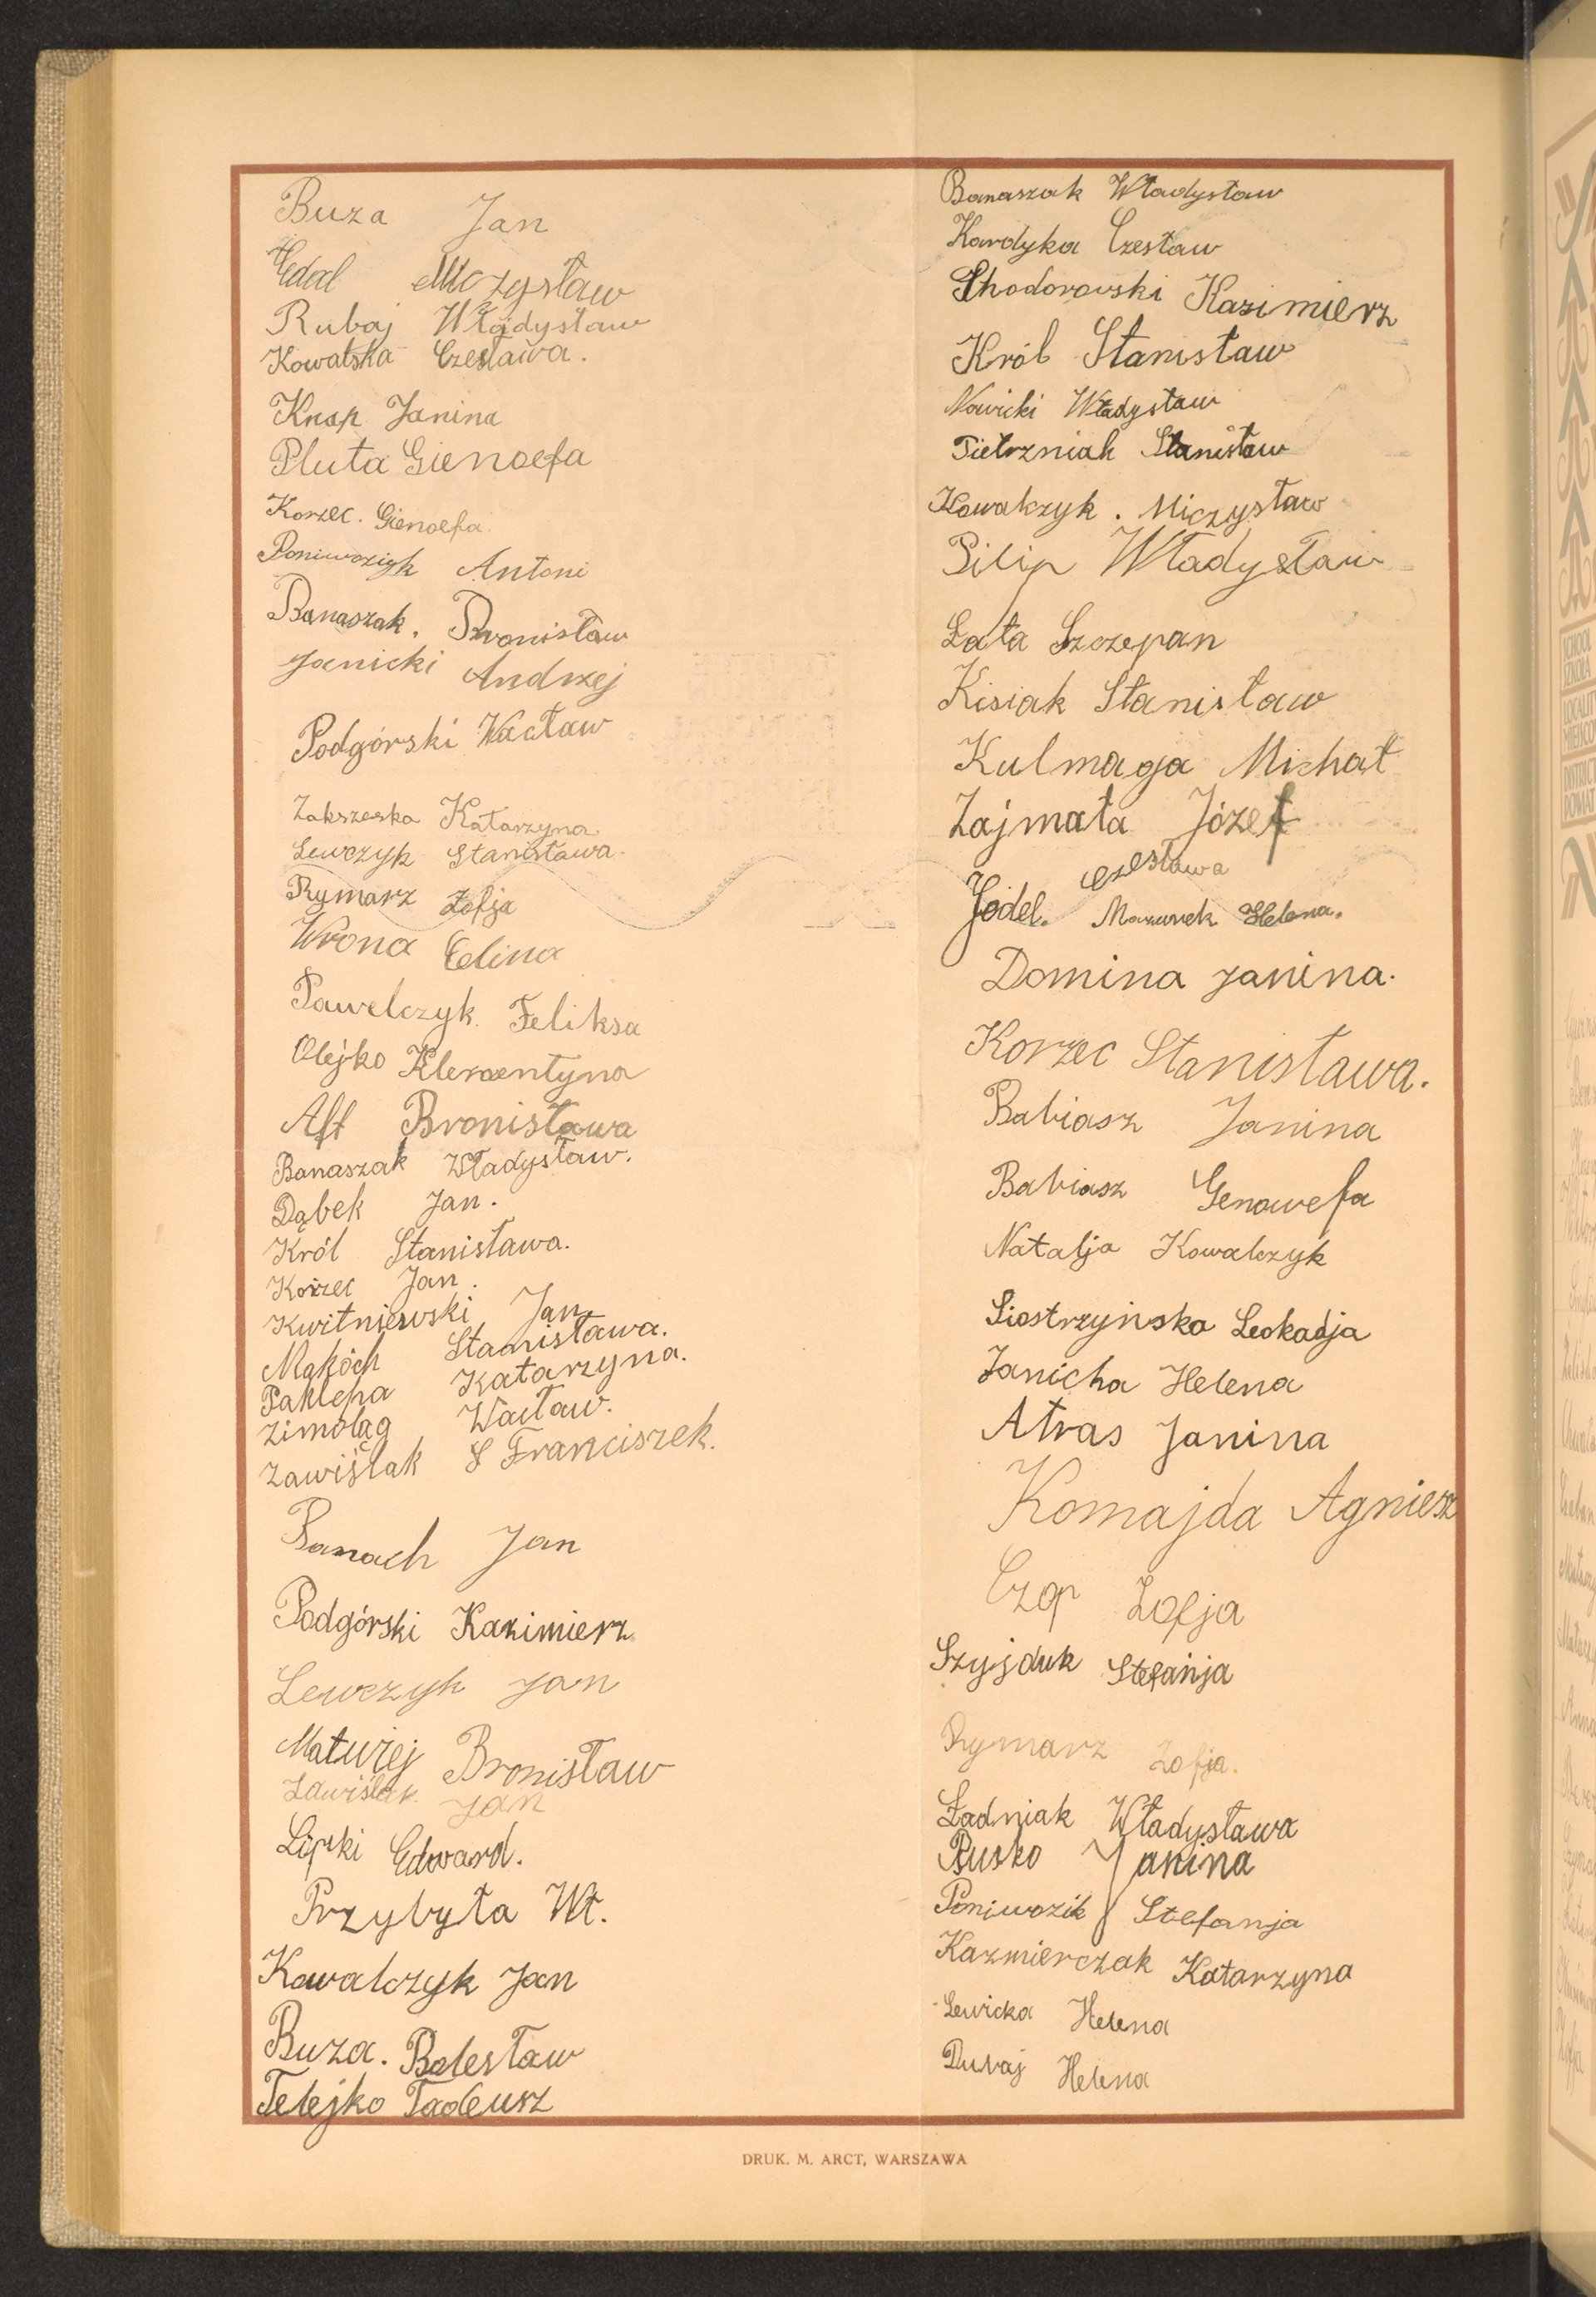 Buza Jan
Edal Miczysław
Rubaj Władysław
Kowalska Czesława.
Knap Janina
Pluta Gienoefa
Korzec. Gienoefa.
Antoni
Banaszak. Bronisław
Janicki Andrzej
Podgórski Wacław
Zakszeska Katarzyna
Lewczyk Stanisława.
Rymarz Zofja
Wrona Celina
Pawelczyk. Feliksa
Olejko Klementyna
Aft Bronisława
Banaszak Władysław.
Dąbek Jan.
Król Stanisława.
Korzec Jan.
Kwitniewski Jan.
Mąkóch Stanisława.
Paklepa Katarzyna.
Zimoląg Wacław.
Zawiślak Franciszek.
Banach Jan
Podgórski Kazimierz
Lewczyk Jan
Matwiej Bronisław
Zawiślak Jan
Lipski Edward.
Przybyła Wł.
Kowalczyk Jan
Buza. Bolesław
Telejko Tadeusz
Banaszak Władysław
Kardyka Czesław
Chodorowski Kazimierz
Król Stanisław
Nowicki Władysław
Pietrzniak Stanisław
Kowalczyk. Miczysław
Pilip Władysław
Łata Szczepan
Kisiak Stanisław
Kulmaga Michał
Zajmała Józef
Jódel. Czesława
Mazurek Helena.
Domina Janina.
Korzec Stanisława.
Babiasz Janina
Babiasz Genowefa
Natalja Kowalczyk
Siostrzyńska Leokadja
Janicha Helena
Atras Janina
Komajda Agniesz
Czop Zofja
Szyjduk Stefańja
Rymarz Zofja.
Ładniak Władysława
Busko Janina
Poniwozik Stefanja
Kazmierczak Katarzyna
Lewicka Helena
Helena
DRUK. M. ARCT, WARSZAWA
SCHOOL
SZKOŁA